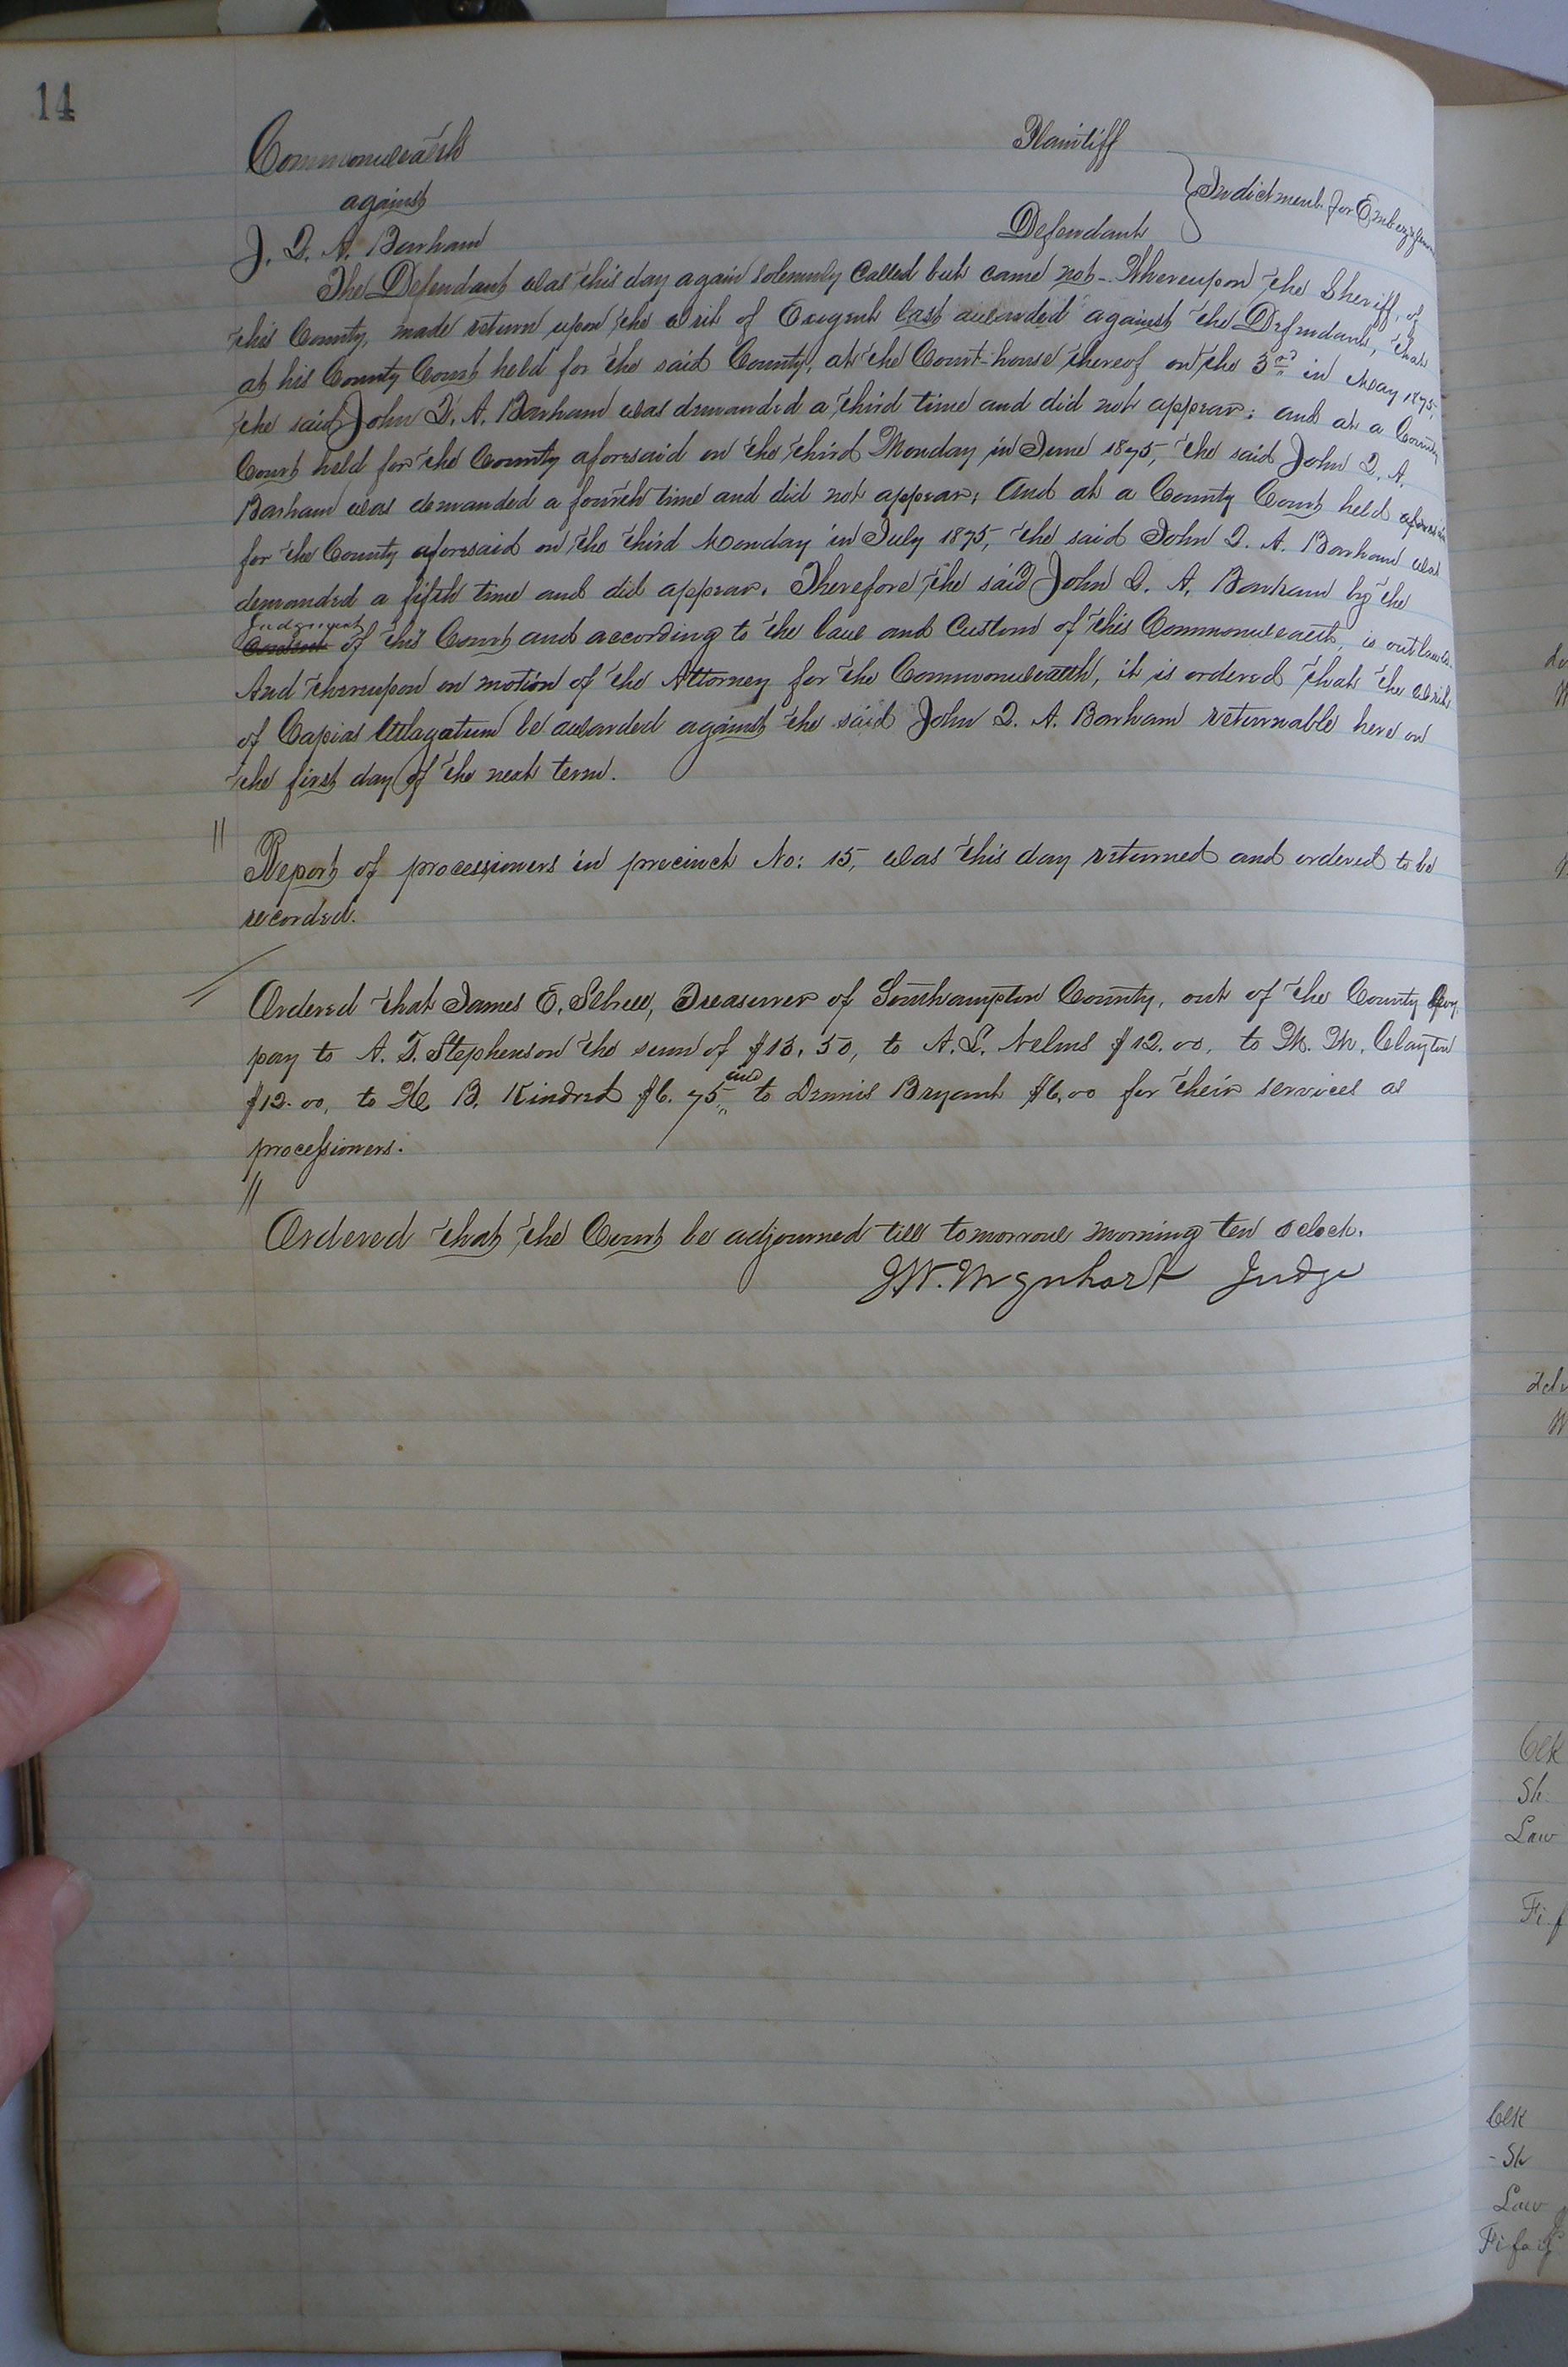 14
Commonwealth Plaintiff
against } Indictment for Embezzlem
J. Q. A. Barham Defendant
The Defendant was this day again solemnly called but came not - Whereupon the Sheriff, of
this County, made return upon the writ of Exigent last awarded against the Defendant, that
at his County Court held for the said County, at the Court-house thereof on the 3rd in May 1875,
the said John Q. A. Barham was demanded a third time and did not appear; and at a County
Court held for the County aforesaid on the third Monday in June 1875, the said John Q. A.
Barham was demanded a fourth time and did not appear; And at a County Court held aforesaid
for the County aforesaid on the third Monday in July 1875, the said John Q. A. Barham was
demanded a fifth time and did appear. Therefore the said John Q. A. Barham by the
Judgment
of this Court and according to the law and Custom of this Commonwealth, is outlawed.
And thereupon on motion of the Attorney for the Commonwealth, it is ordered that the writ
of Capias Utlagatum be awarded against the said John Q. A. Barham returnable here on
the first day of the next term.
"
Report of processioners in precinct No: 15, was this day returned and ordered to be
recorded.
Ordered that James E. Sebrell, Treasurer of Southampton County, out of the County levy,
pay to A. T. Stephenson the sum of $13.50, to A. L. Nelms $12.00, to M. M. Clayton
$12.00, to H. B. Kindred $6.75, and to Dennis Bryant $6.00 for their services as
processioners.
"
Ordered that the Court be adjourned till tomorrow morning ten oclock.
Judge
Clk
Sh.
Law
Fi f
Clk
- Sh
Law
Fi fa